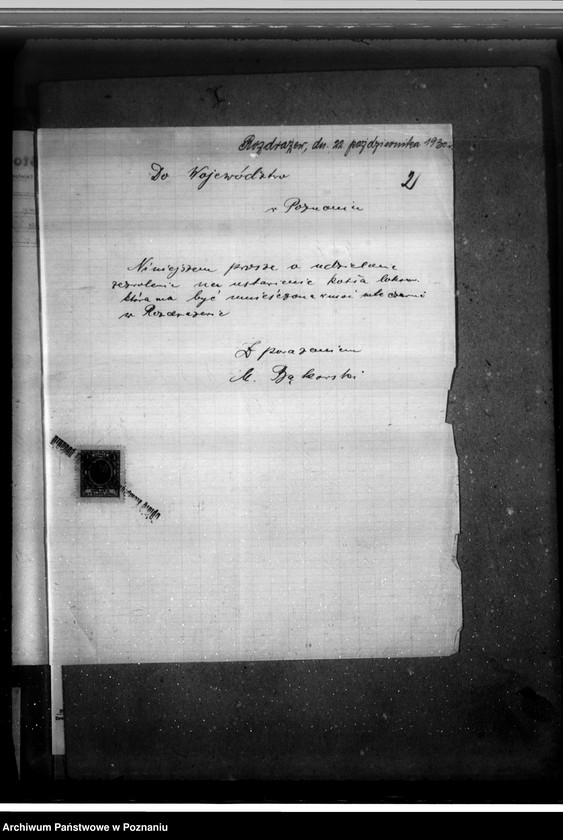 Rozdrażew, dn. 22 października 1930r.
Do Województwa
2
w Poznaniu
Niniejszem proszę o udzielenie
zezwolenia na ustawienie kotła lokom.
która ma być umieszczona mleczarni
w Rozdrażewie
Z poważaniem
M. Bąkowski
Archiwum Państwowe w Poznaniu